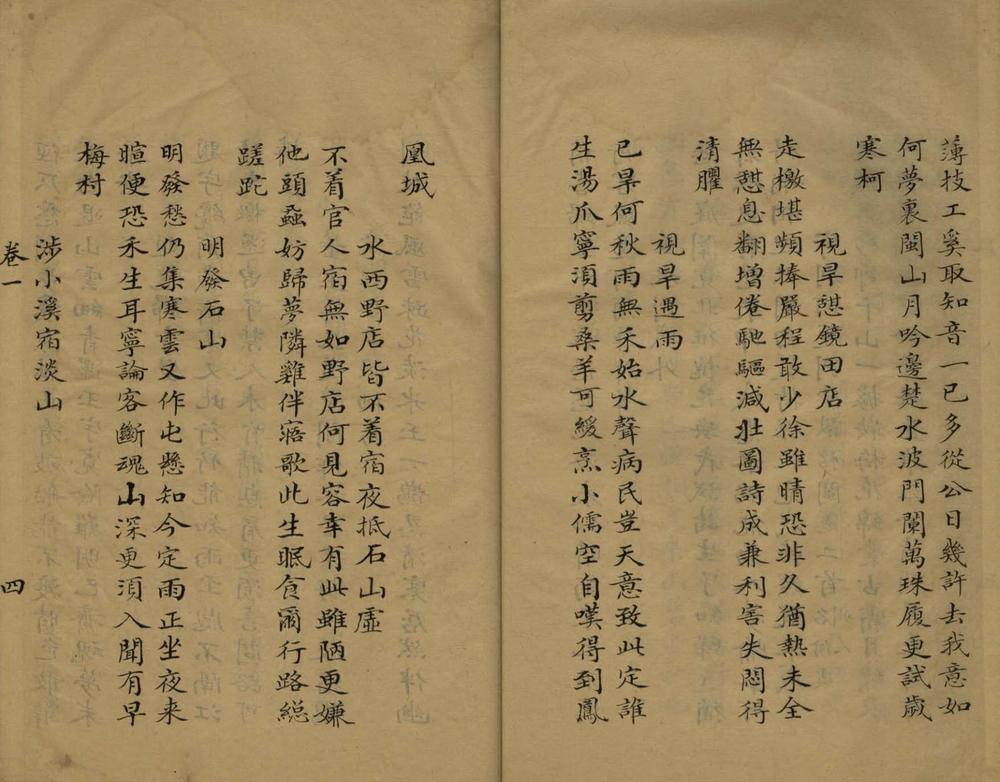 薄技工奚取知音一已多從公日幾許去我意如
何夢裏閩山月吟邊楚水波門闌萬珠履更試歲
寒柯
視旱憇鏡田店
走檄堪頻捧嚴程敢少徐雖晴恐非久猶熱未全
無憇息翻增倦馳驅減壯圖詩成兼利害失悶得
清臞
視旱遇雨
已旱何秋雨無禾始水聲病民豈天意致此定誰
生湯爪寧須剪桑羊可緩烹小儒空自嘆得到鳳
凰城
水西野店皆不着宿夜抵石山虛
不着官人宿無如野店何見容幸有此雖陋更嫌
他頭蝨妨歸夢隣雞伴寤歌此生眠食爾行路總
蹉跎
明發石山
明發愁仍集寒雲又作屯懸知今定雨正坐夜來
暄便恐禾生耳寧論客斷魂山深更須入聞有早
梅村
涉小溪宿淡山
卷一
四